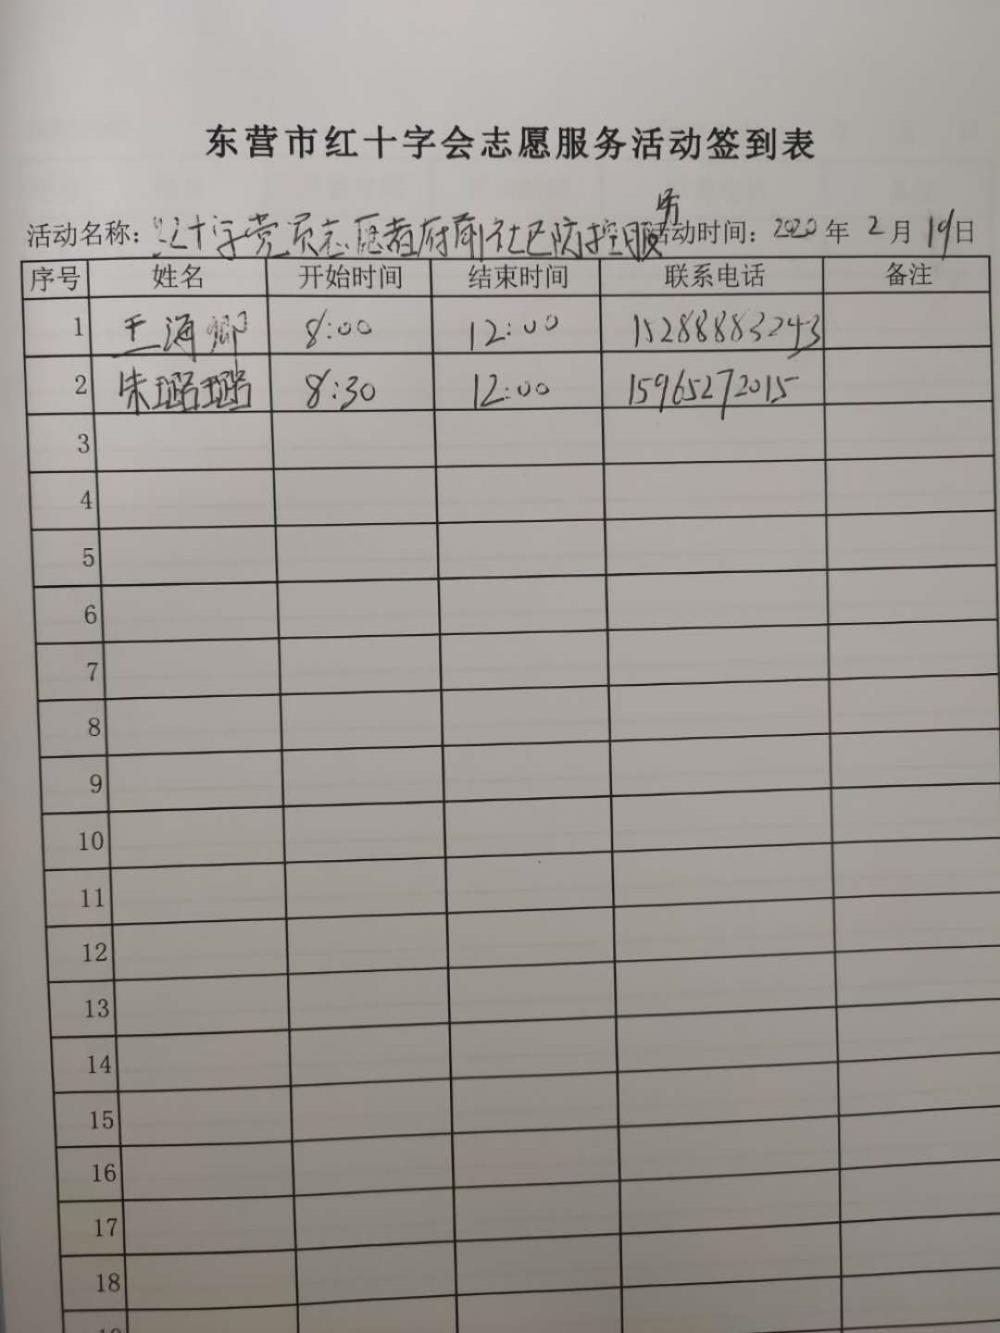 东营市红十字会志愿服务活动签到表
活动名称：红十字党员志愿者府前社区防控服务 活动时间：2020年2月19日
序号 姓名 开始时间 结束时间 联系电话 备注
1 王海卿 8:00 12:00 15288883243
2 朱璐璐 8:30 12:00 15965272015
3
4
5
6
7
8
9
10
11
12
13
14
15
16
17
18